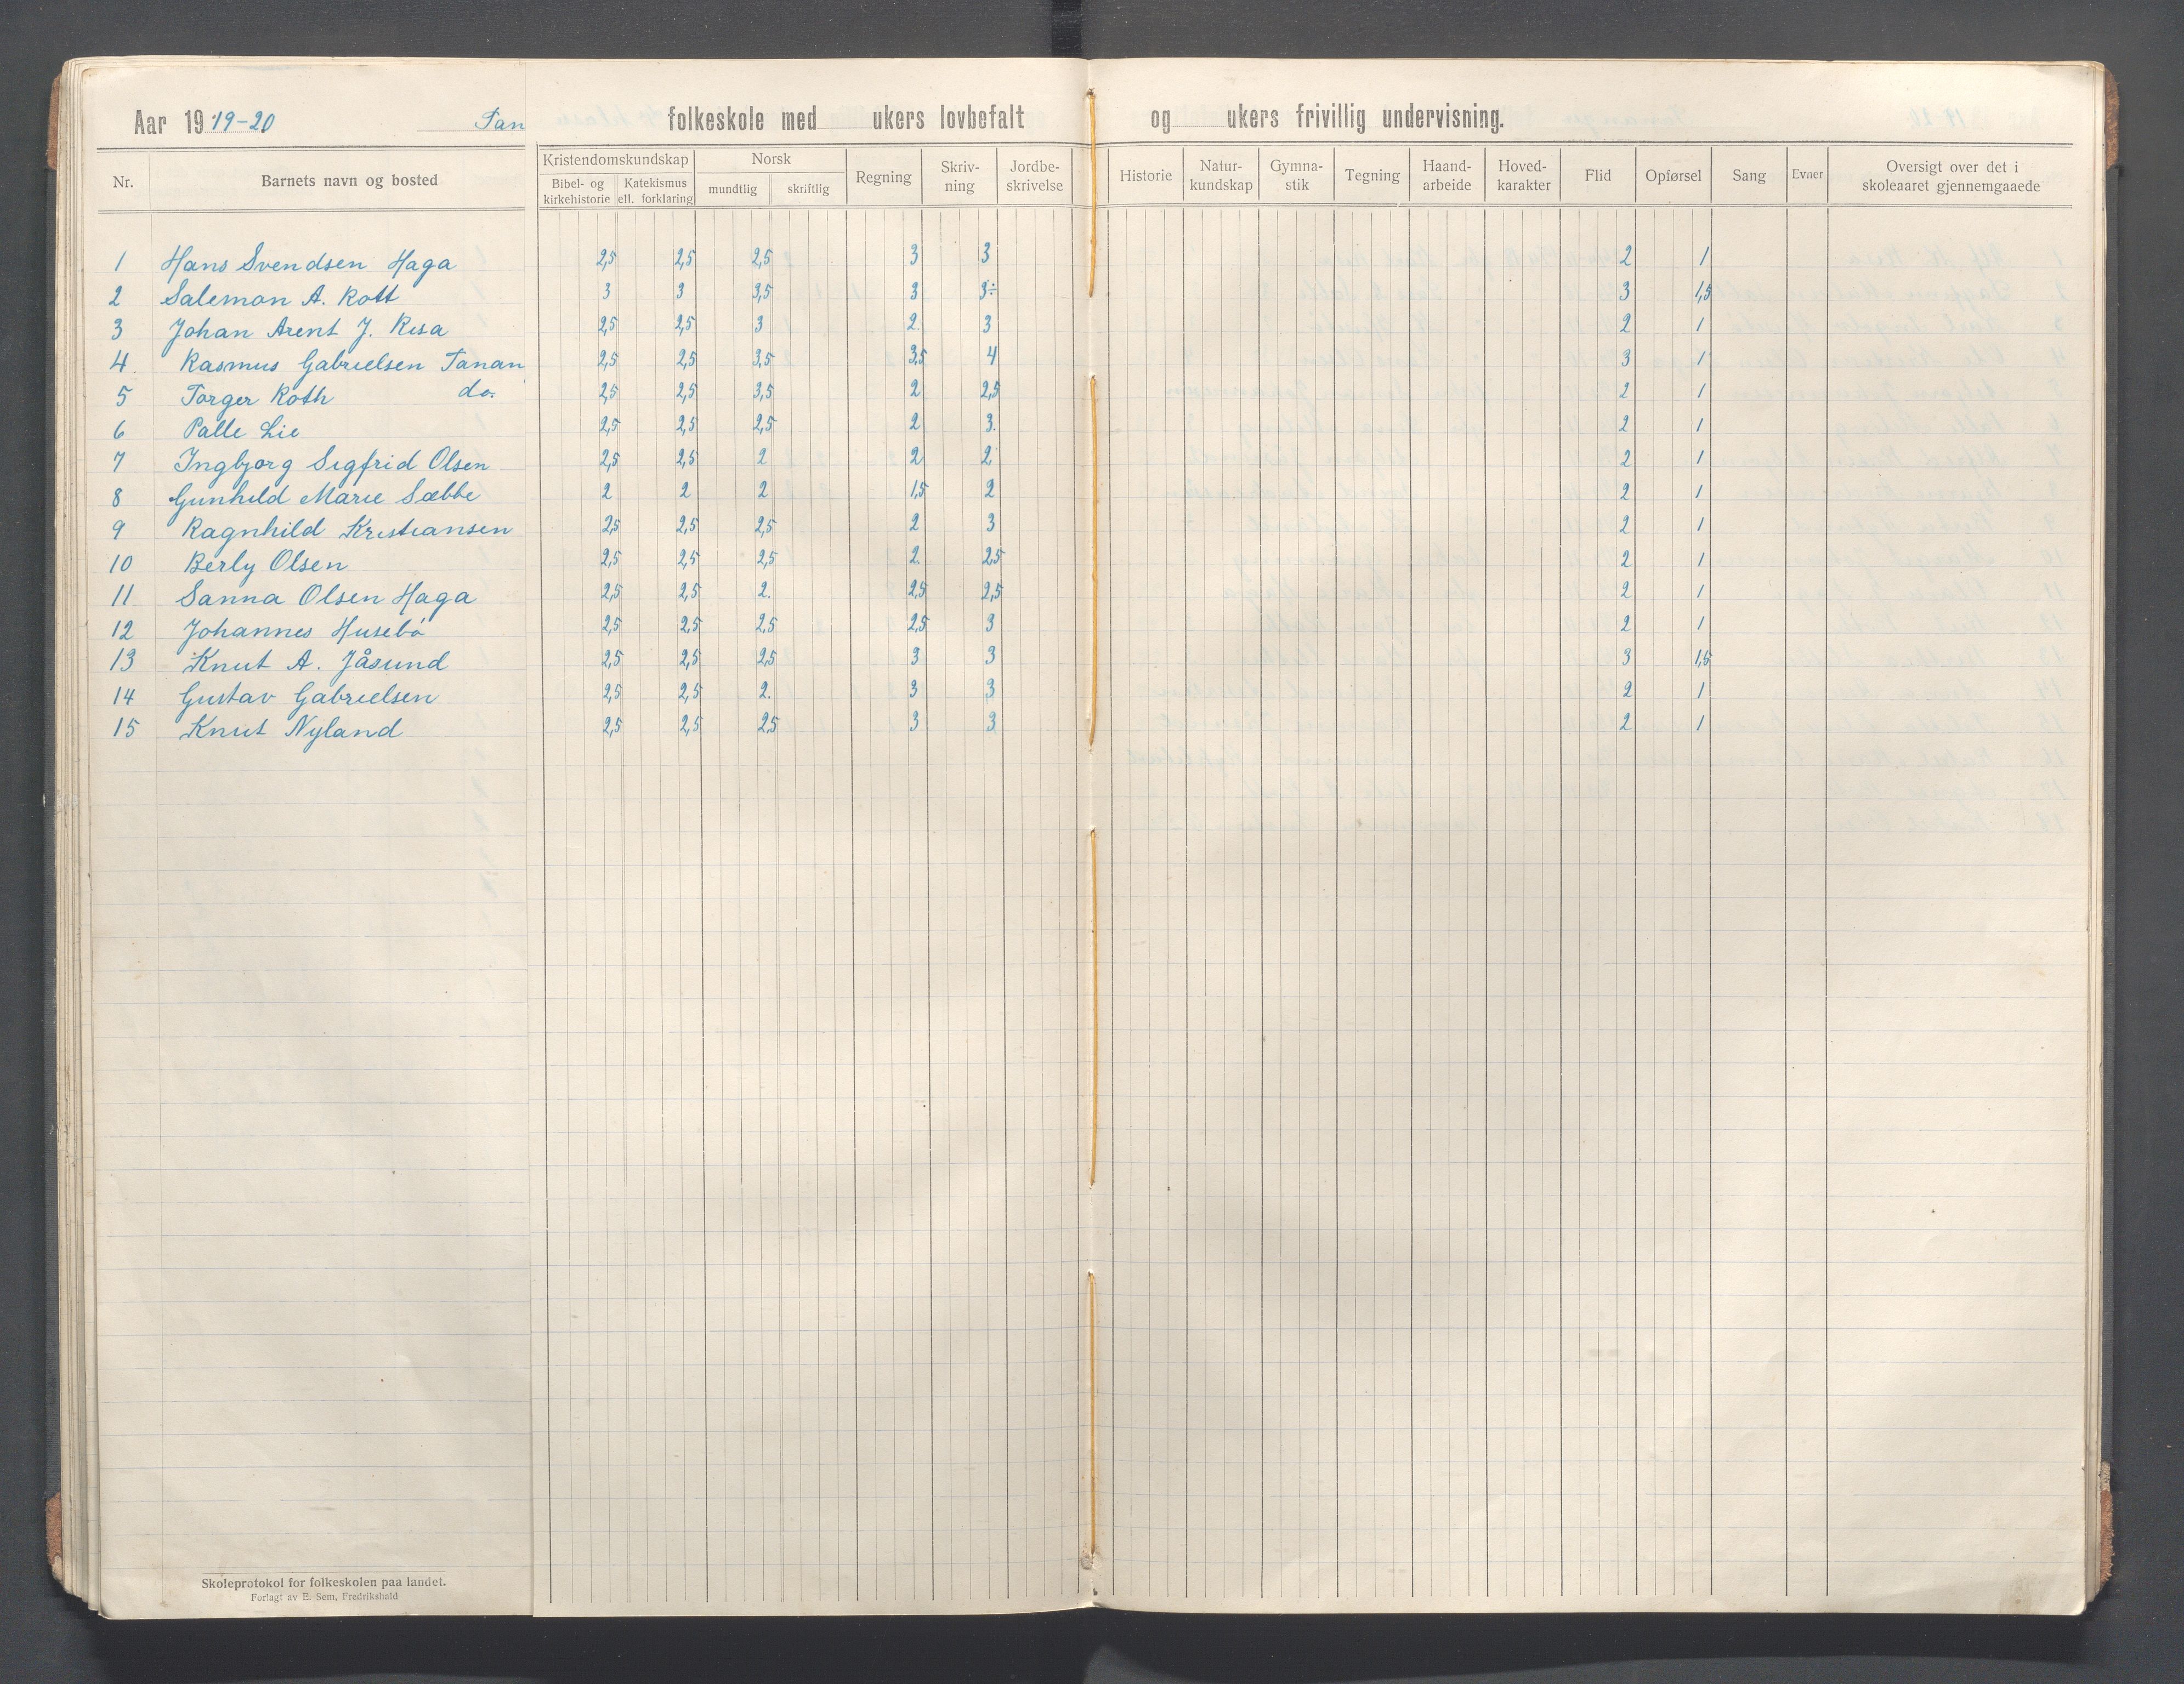 Aar 1919-20 Tan folkeskole med ukers lovbefalt og ukers frivillig undervisning.
Nr. Barnets navn og bosted Kristendomskundskap Bibel- og kirkehistorie Katekismus ell. forklaring Norsk mundtlig skriftlig Regning Skriv-ning Jordbe-skrivelse Historie Natur-kundskap Gymna-stik Tegning Haand-arbeide Hoved-karakter Flid Opførsel Sang Evner Oversigt over det i skoleaaret gjennemgaaede
1 Hans Svendsen Haga 2,5 2,5 2,5 3 3 2 1
2 Salemon A. Rott 3 3 3,5 3 3÷ 3 1,5
3 Johan Arent J. Risa 2,5 2,5 3 2. 3 2 1
4. Rasmus Gabrielsen Tanan 2,5 2,5 3,5 3,5 4 3 1
5 Torger Roth do. 2,5 2,5 3,5 2 2,5 2 1
6 Palle Lie 2,5 2,5 2,5 2 3. 2 1
7 Ingbjorg Sigfrid Olsen 2,5 2,5 2 2 2 2 1
8 Gunhild Marie Sæbbe 2 2 2 1,5 2 2 1
9 Ragnhild Kristiansen 2,5 2,5 2,5 2 3 2 1
10 Berly Olsen 2,5 2,5 2,5 2. 2,5 2 1
11 Sanna Olsen Haga 2,5 2,5 2. 2,5 2,5 2 1
12 Johannes Husebø 2,5 2,5 2,5 2,5 3 2 1
13 Knut A. Jåsund 2,5 2,5 2,5 3 3 3 1,5
14 Gustav Gabrielsen 2,5 2,5 2. 3 3 2 1
15 Knut Nyland 2,5 2,5 2,5 3 3 2 1
Skoleprotokol for folkeskolen paa landet.
Forlagt av E. Sem, Fredrikshald